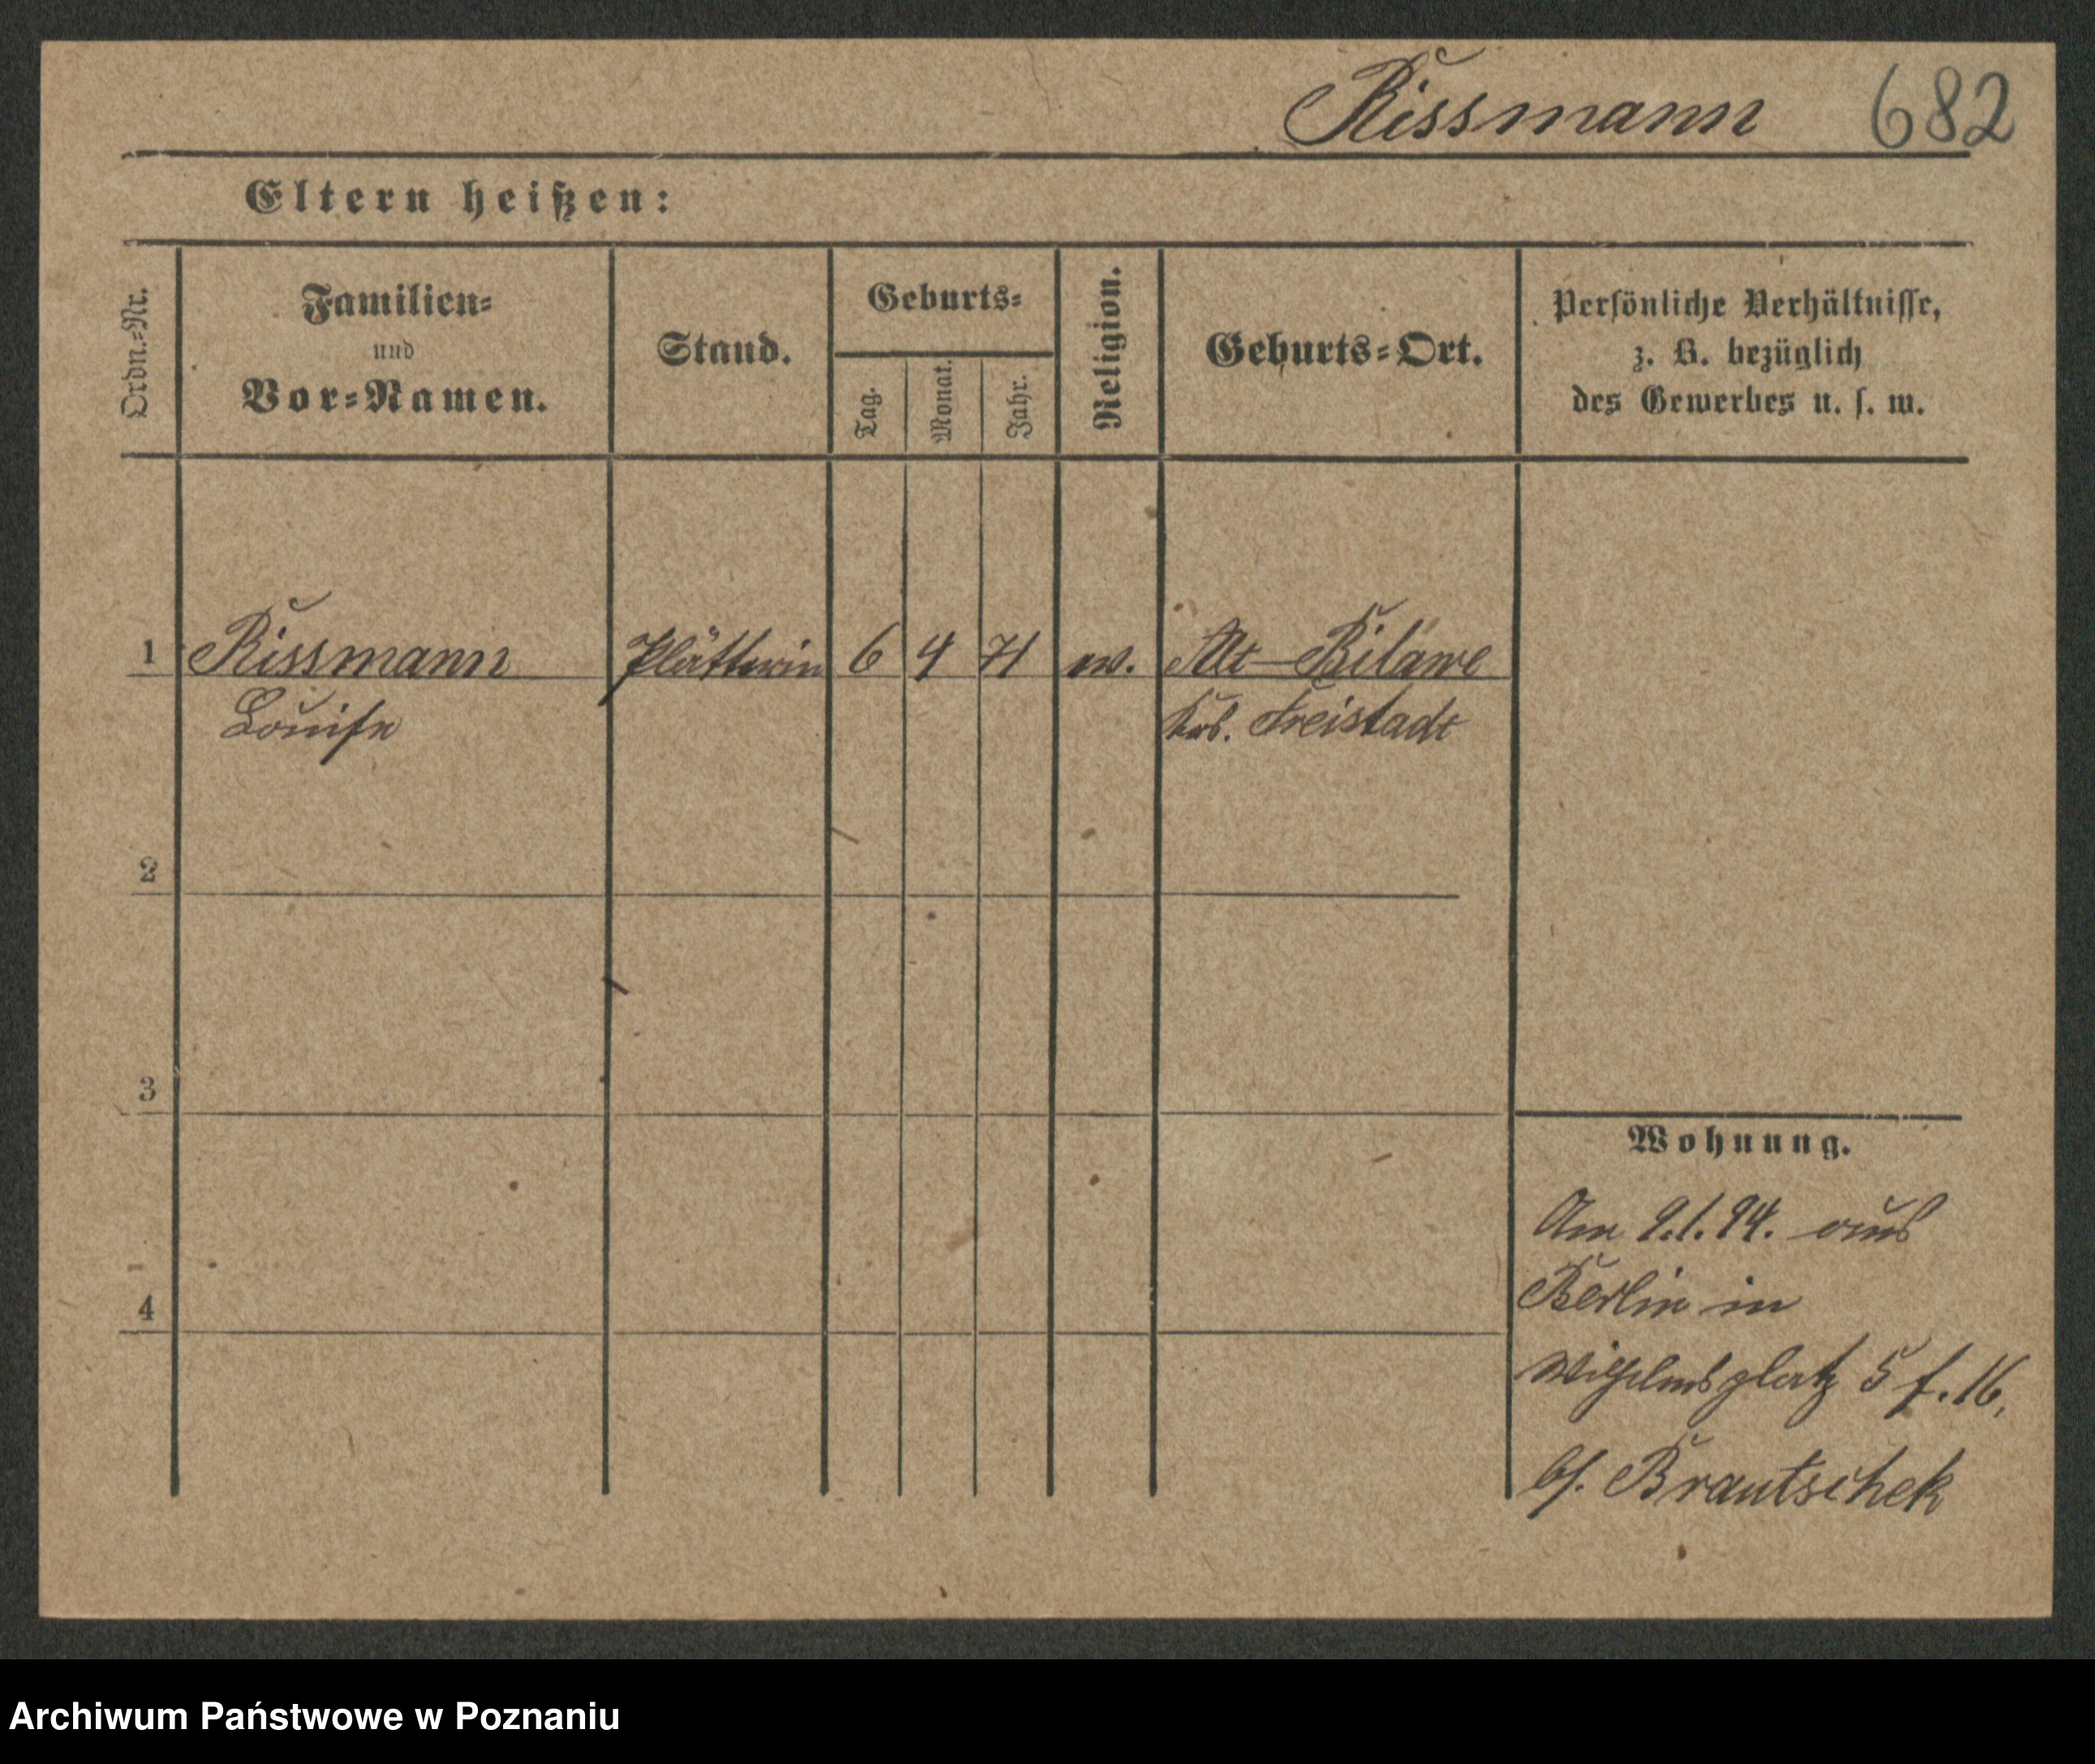 Rissmann 682
Eltern heißen:
Ordn.=Nr.
Familien=
und
Vor=Namen.
Stand.
Geburts=
Tag.
Monat.
Jahr.
Religion.
Geburts=Ort.
Persönliche Verhältnisse,
z. B. bezüglich
des Gewerbes u. s. w.
1 Rissmann Plätterin 6 4 71 ev. Alt-Bilawe
Louise Krb. Freistadt
2
3
4
Wohnung.
Am 9.1.94. aus
Berlin in
Wilhelmsplatz 5 f. 16,
bf. Brautschek
Archiwum Państwowe w Poznaniu